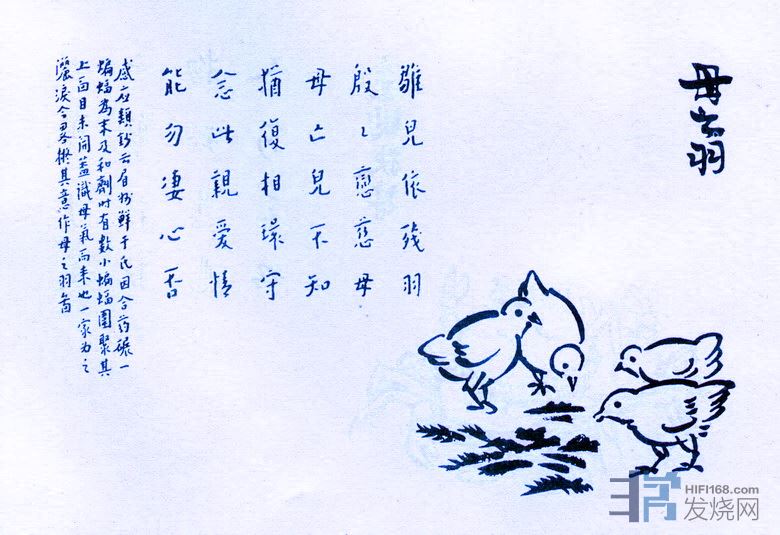 母之羽
雛兒依殘羽
殷々戀慈母
母亡兒不知
猶復相環守
念此親愛情
能勿凄心否
感应類鈔云眉州鮮于氏因合药碾一
蝙蝠為末及和劑时有數小蝙蝠圍聚其
上面目未開蓋識母氣而来也一家为之
灑淚今畧擬其意作母之羽啚
HIFI168.com
发烧网